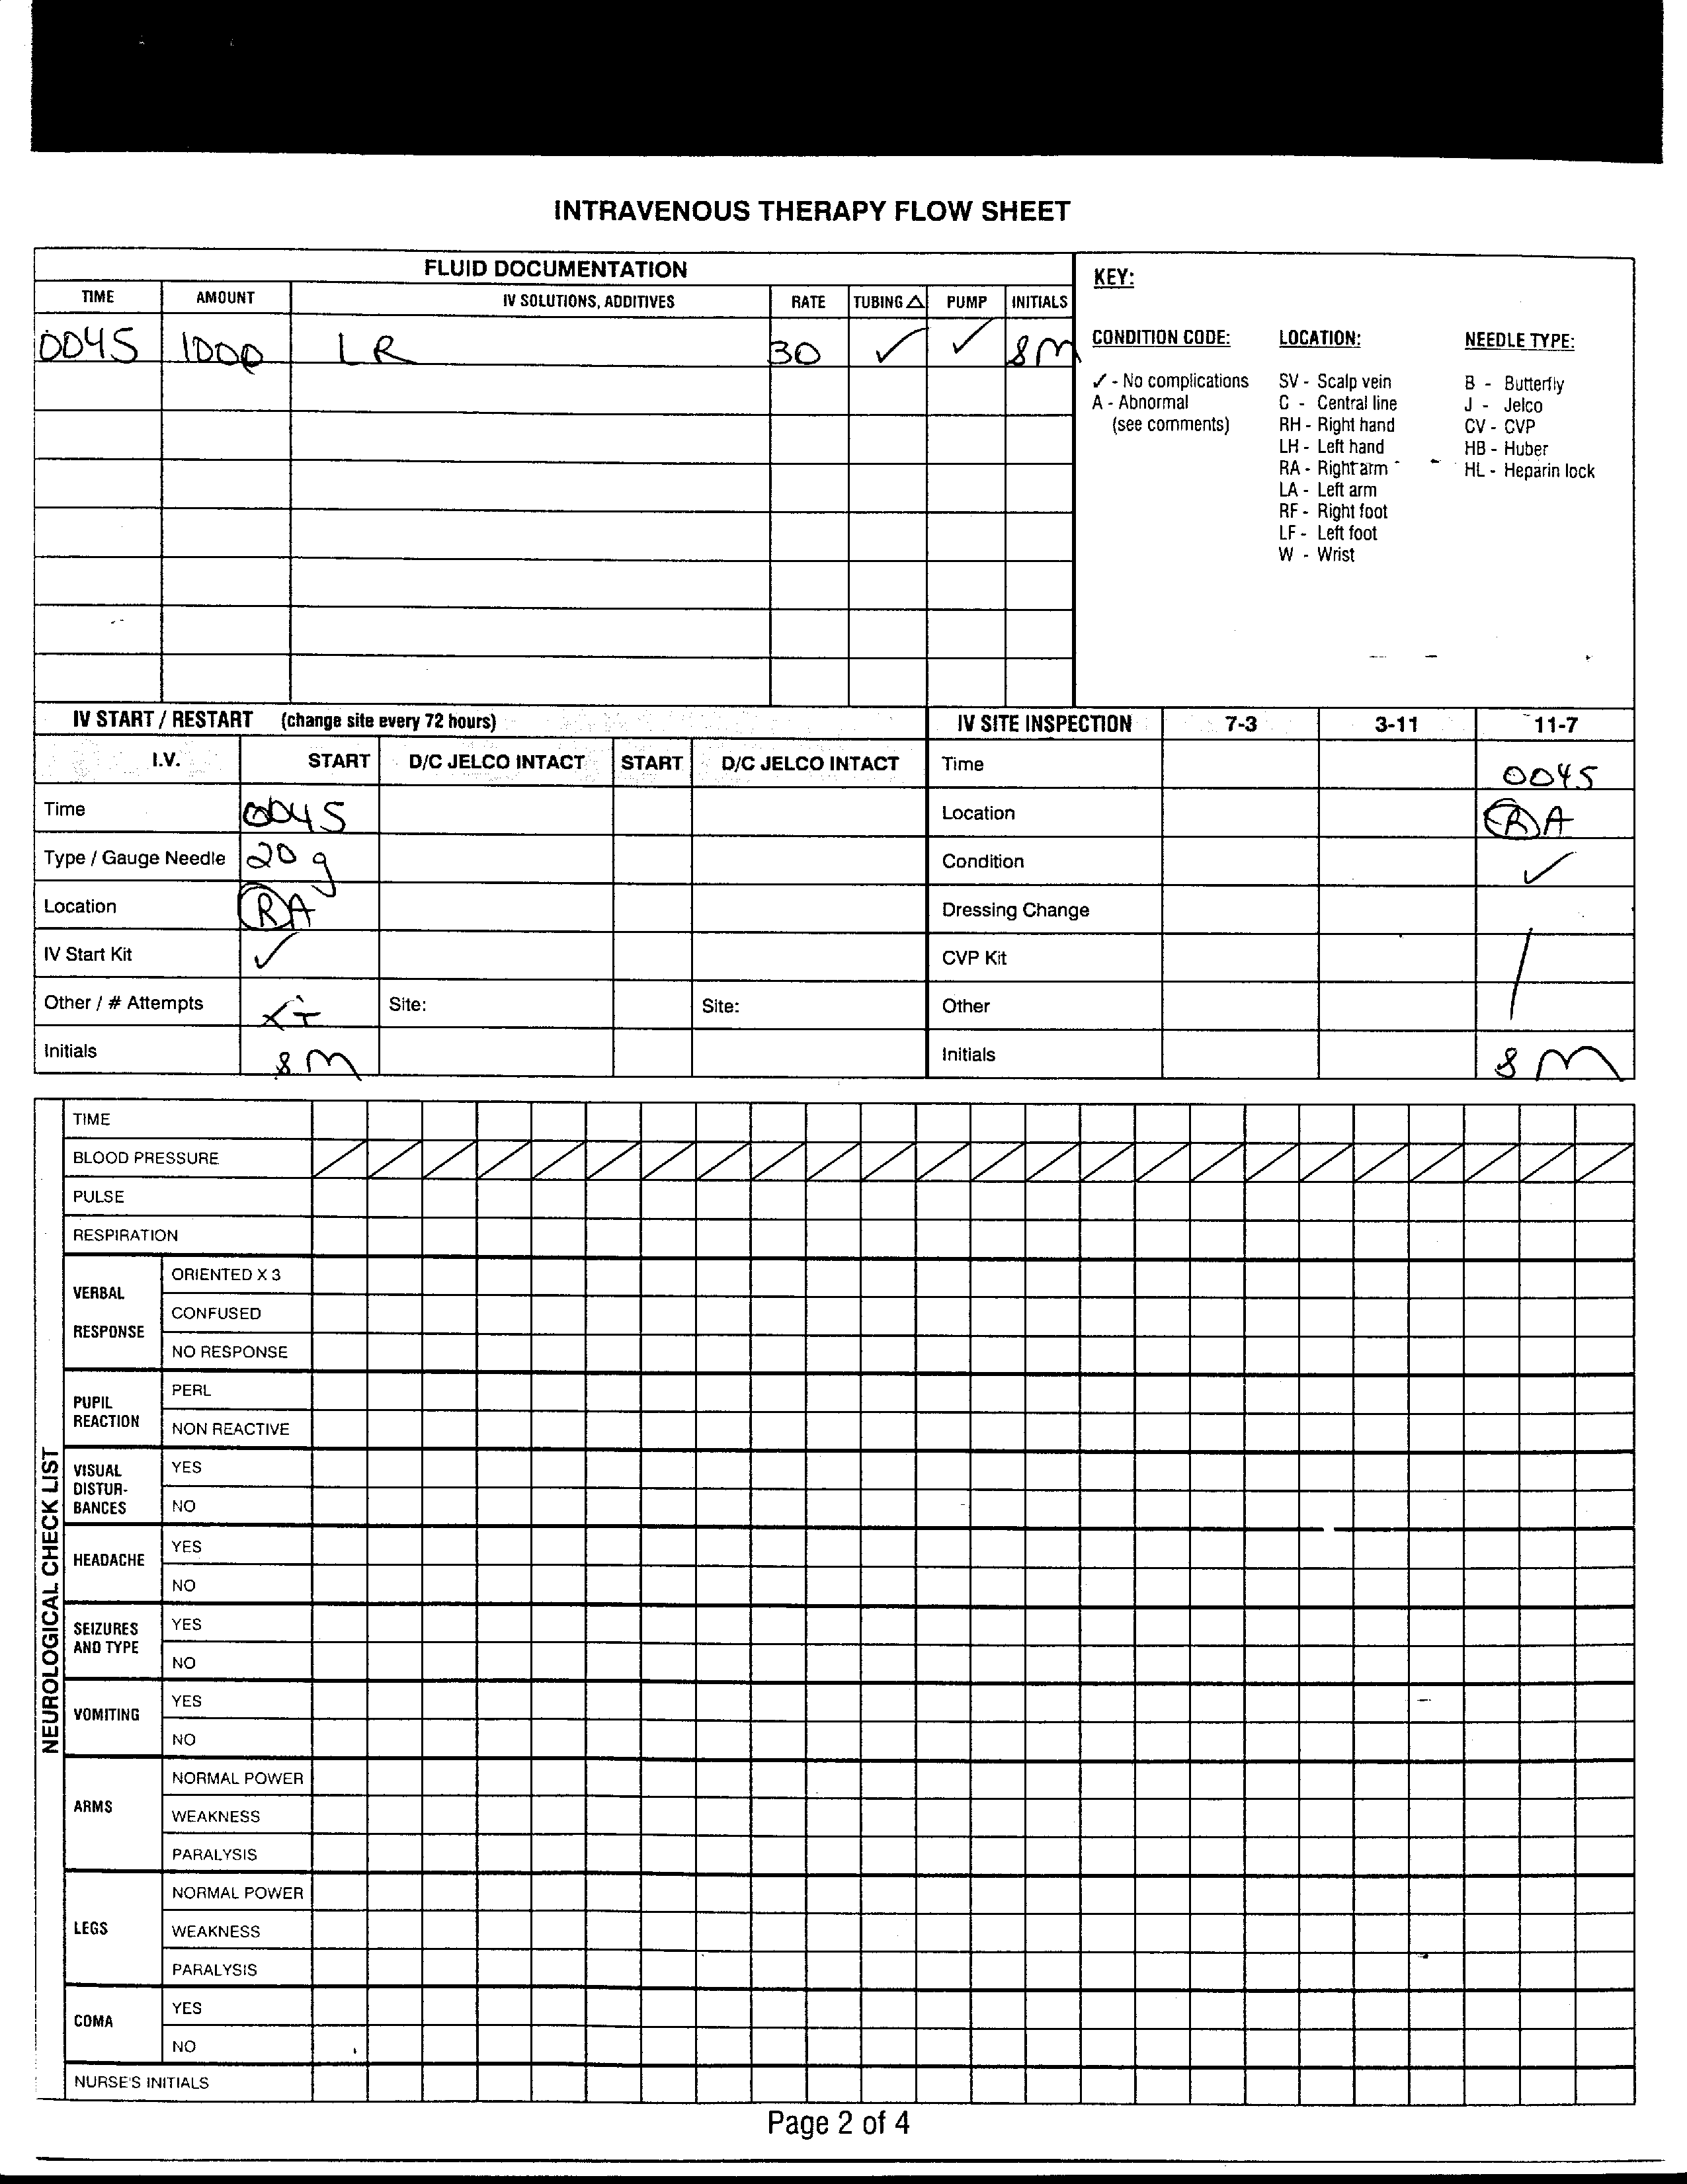 INTRAVENOUS THERAPY FLOW SHEET
FLUID DOCUMENTATION
TIME AMOUNT IV SOLUTIONS, ADDITIVES RATE TUBING △ PUMP INITIALS
0045 1000 LR 30 ✓ ✓ SM
KEY:
CONDITION CODE:
✓ - No complications
A - Abnormal
(see comments)
LOCATION:
SV - Scalp vein
C - Central line
RH - Right hand
LH - Left hand
RA - Right arm
LA - Left arm
RF - Right foot
LF - Left foot
W - Wrist
NEEDLE TYPE:
B - Butterfly
J - Jelco
CV - CVP
HB - Huber
HL - Heparin lock
IV START / RESTART (change site every 72 hours)
I.V. START D/C JELCO INTACT START D/C JELCO INTACT
Time 0045
Type / Gauge Needle 20 g
Location RA
IV Start Kit ✓
Other / # Attempts Site: Site:
Initials SM
IV SITE INSPECTION 7-3 3-11 11-7
Time 0045
Location RA
Condition ✓
Dressing Change
CVP Kit
Other
Initials SM
NEUROLOGICAL CHECK LIST
TIME
BLOOD PRESSURE
PULSE
RESPIRATION
VERBAL
RESPONSE
ORIENTED X 3
CONFUSED
NO RESPONSE
PUPIL
REACTION
PERL
NON REACTIVE
VISUAL
DISTUR-
BANCES
YES
NO
HEADACHE
YES
NO
SEIZURES
AND TYPE
YES
NO
VOMITING
YES
NO
ARMS
NORMAL POWER
WEAKNESS
PARALYSIS
LEGS
NORMAL POWER
WEAKNESS
PARALYSIS
COMA
YES
NO
NURSE'S INITIALS
Page 2 of 4